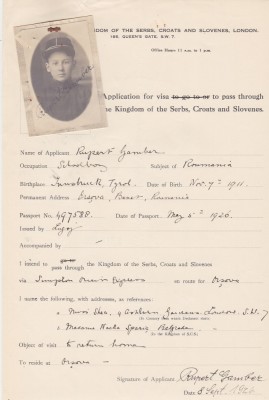 DOM OF THE SERBS, CROATS AND SLOVENES, LONDON.
195, QUEEN'S GATE, S.W.7.
Office Hours: 11 a.m. to 1 p.m.
Application for visa to go to or to pass through
the Kingdom of the Serbs, Croats and Slovenes.
Name of Applicant Rupert Gamber
Occupation Schoolboy Subject of Roumania
Birthplace Innsbruck, Tyrol Date of Birth Nov. 7th 1911.
Permanent Address Orsova, Banat, Romania
Passport No. 497588 Date of Passport May 5th 1926.
Issued by
Accompanied by
I intend to go to the Kingdom of the Serbs, Croats and Slovenes
pass through
via Simplon Orient Express en route for Orsova
I name the following, with addresses, as references:
Gardens London S.W.7
(In Country from which Declarant starts)
Belgrade
(In the Kingdom of S.C.S.)
Object of visit to return home
To reside at Orsova
Signature of Applicant Rupert Gamber
Date 8 Sept. 1926